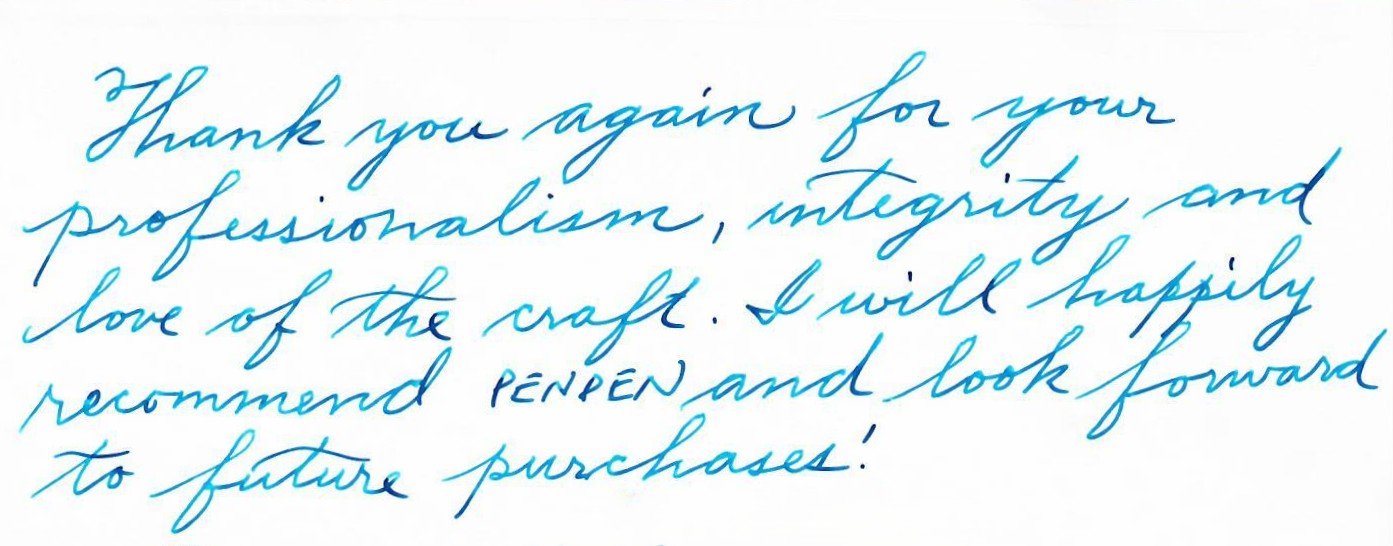 Thank you again for your
professionalism, integrity and
love of the craft. I will happily
recommend PENPEN and look forward
to future purchases!